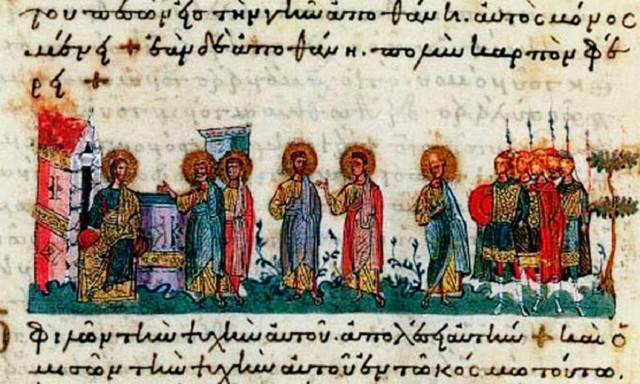 του πεσὼν εἰς τὴν γῆν ἀποθάνη. αὐτὸς μόνος
μένει + ἐὰν δὲ ἀποθάνη. πολὺν καρπὸν φέ
ρει +
Ὁ φιλῶν τὴν ψυχὴν αὐτοῦ. ἀπολέσει αὐτήν + καὶ ὁ
μισῶν τὴν ψυχὴν αὐτοῦ ἐν τῷ κόσμω τούτω.